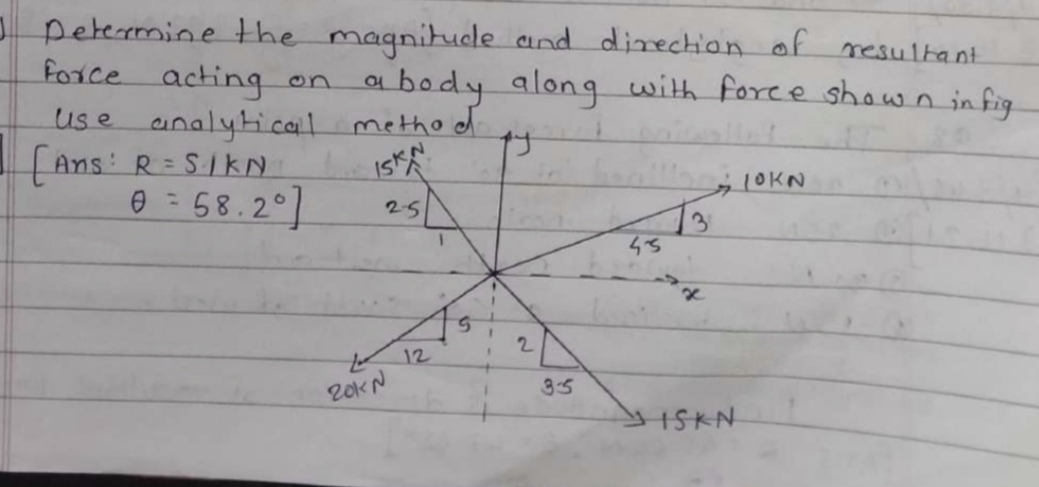 Determine the magnitude and direction of resultant
force acting on a body along with force shown in fig
Use analytical method
[Ans: R = 5.1KN
θ = 58.2°]
y
15KN
10KN
2.5
1
3
4.5
x
5
12
2
3.5
20KN
15KN